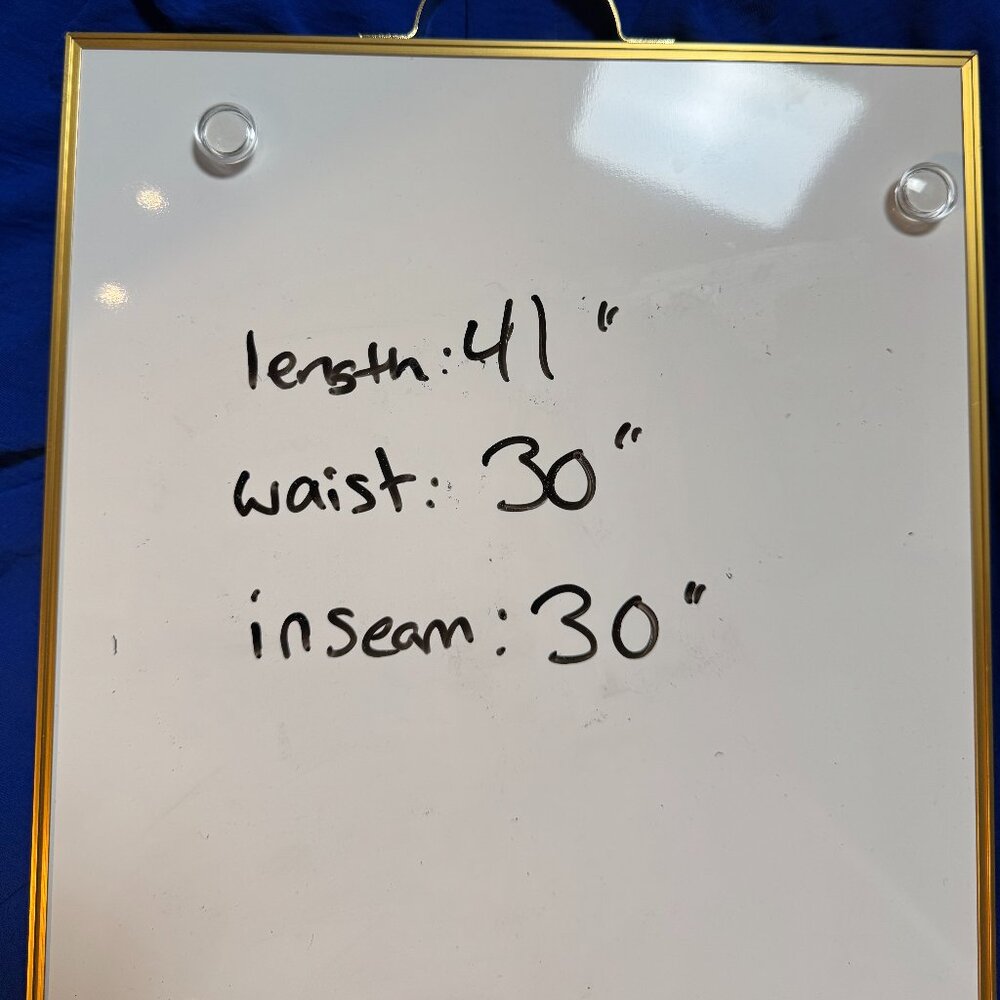 length: 41"
waist: 30"
inseam: 30"